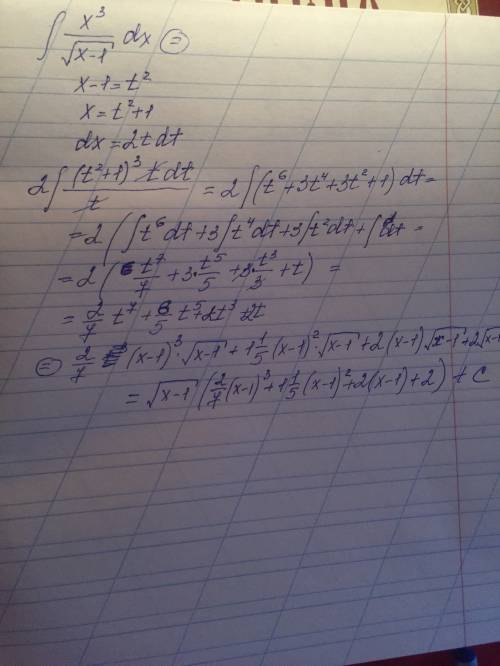 ∫ x³/√(x-1) dx ⊜
x-1=t²
x=t²+1
dx=2t dt
2∫ (t²+1)³ t dt / t = 2∫(t⁶+3t⁴+3t²+1) dt=
=2(∫t⁶dt+3∫t⁴dt+3∫t²dt+∫dt =
=2( t⁷/7 + 3·t⁵/5 +3·t³/3 +t) =
= 2/7 t⁷ + 6/5 t⁵+2t³+2t
⊜ 2/7 (x-1)³·√(x-1) + 1 1/5 (x-1)²·√(x-1)+2(x-1)√(x-1)+2√(x-1)
= √(x-1) (2/7 (x-1)³+1 1/5 (x-1)²+2(x-1)+2) + C